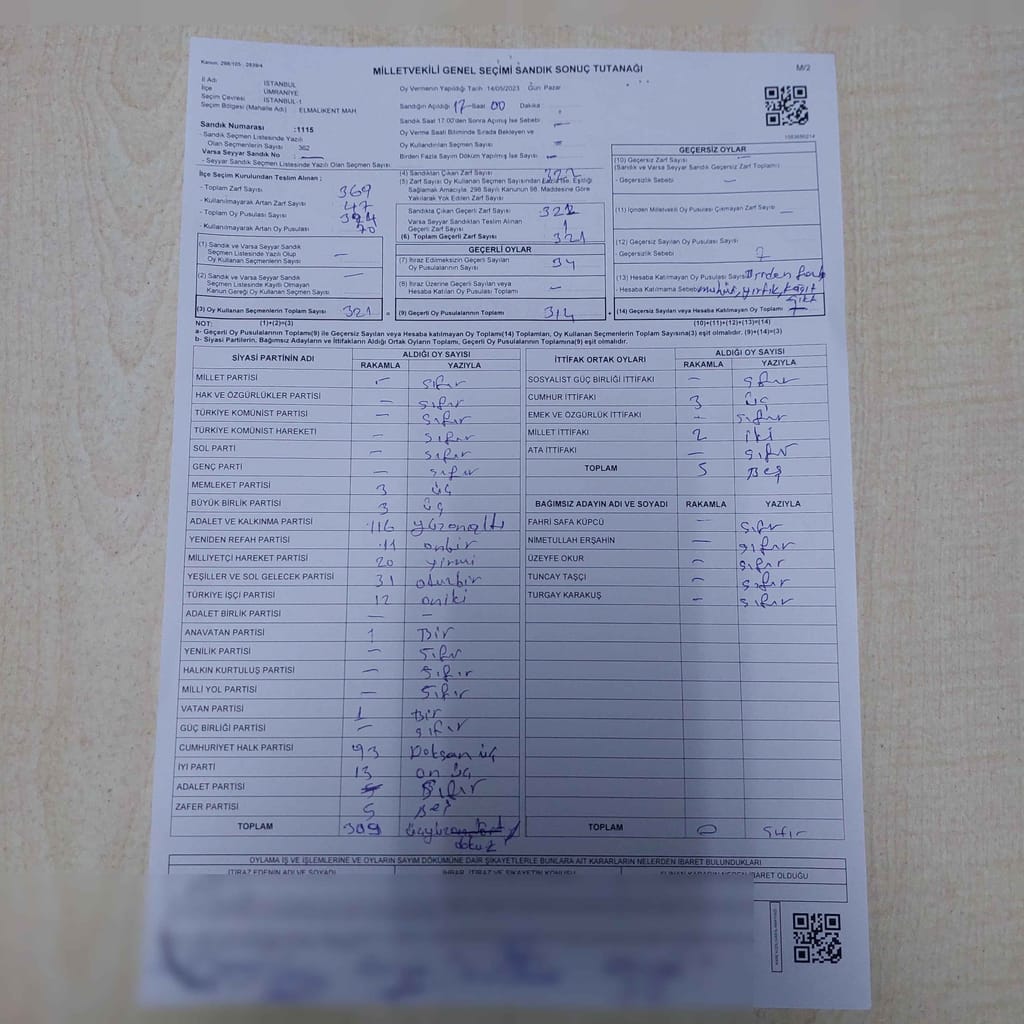 Kanun: 298/105 : 2839/4
MİLLETVEKİLİ GENEL SEÇİMİ SANDIK SONUÇ TUTANAĞI
M/2
İl Adı : İSTANBUL
İlçe : ÜMRANİYE
Seçim Çevresi : İSTANBUL-1
Seçim Bölgesi (Mahalle Adı) : ELMALIKENT MAH
Sandık Numarası :1115
- Sandık Seçmen Listesinde Yazılı
Olan Seçmenlerin Sayısı 362
Varsa Seyyar Sandık No : —
- Seyyar Sandık Seçmen Listesinde Yazılı Olan Seçmen Sayısı
Oy Vermenin Yapıldığı Tarih :14/05/2023 Gün: Pazar
Sandığın Açıldığı 17 Saat 00 Dakika :
Sandık Saat 17:00'den Sonra Açılmış İse Sebebi : —
Oy Verme Saati Bitiminde Sırada Bekleyen ve
Oy Kullandırılan Seçmen Sayısı : —
Birden Fazla Sayım Döküm Yapılmış İse Sayısı : —
İlçe Seçim Kurulundan Teslim Alınan ;
- Toplam Zarf Sayısı 369
- Kullanılmayarak Artan Zarf Sayısı 47
- Toplam Oy Pusulası Sayısı
- Kullanılmayarak Artan Oy Pusulası 70
(1) Sandık ve Varsa Seyyar Sandık
Seçmen Listesinde Yazılı Olup
Oy Kullanan Seçmenlerin Sayısı —
(2) Sandık ve Varsa Seyyar Sandık
Seçmen Listesinde Kayıtlı Olmayan
Kanun Gereği Oy Kullanan Seçmen Sayısı —
(3) Oy Kullanan Seçmenlerin Toplam Sayısı 321
(4) Sandıktan Çıkan Zarf Sayısı
(5) Zarf Sayısı Oy Kullanan Seçmen Sayısından Fazla İse, Eşitliği
Sağlamak Amacıyla, 298 Sayılı Kanunun 98. Maddesine Göre
Yakılarak Yok Edilen Zarf Sayısı
Sandıkta Çıkan Geçerli Zarf Sayısı
Varsa Seyyar Sandıktan Teslim Alınan
Geçerli Zarf Sayısı
(6) Toplam Geçerli Zarf Sayısı 321
GEÇERLİ OYLAR
(7) İtiraz Edilmeksizin Geçerli Sayılan
Oy Pusulalarının Sayısı
(8) İtiraz Üzerine Geçerli Sayılan veya
Hesaba Katılan Oy Pusulası Toplamı —
= (9) Geçerli Oy Pusulalarının Toplamı 314 +
GEÇERSİZ OYLAR
(10) Geçersiz Zarf Sayısı —
(Sandık ve Varsa Seyyar Sandık Geçersiz Zarf Toplamı)
- Geçersizlik Sebebi —
(11) İçinden Milletvekili Oy Pusulası Çıkmayan Zarf Sayısı —
(12) Geçersiz Sayılan Oy Pusulası Sayısı
Geçersizlik Sebebi 7
(13) Hesaba Katılmayan Oy Pusulası Sayısı Birden fazla
- Hesaba Katılmama Sebebi mühür, yırtık, kağıt
çıktı
(14) Geçersiz Sayılan veya Hesaba Katılmayan Oy Toplamı 7
NOT: (1)+(2)=(3) (10)+(11)+(12)+(13)=(14)
a- Geçerli Oy Pusulalarının Toplamı(9) ile Geçersiz Sayılan veya Hesaba katılmayan Oy Toplamı(14) Toplamları, Oy Kullanan Seçmenlerin Toplam Sayısına(3) eşit olmalıdır. (9)+(14)=(3)
b- Siyasi Partilerin, Bağımsız Adayların ve İttifakların Aldığı Ortak Oyların Toplamı, Geçerli Oy Pusulalarının Toplamına(9) eşit olmalıdır.
SİYASİ PARTİNİN ADI ALDIĞI OY SAYISI
RAKAMLA YAZIYLA
MİLLET PARTİSİ — sıfır
HAK VE ÖZGÜRLÜKLER PARTİSİ — sıfır
TÜRKİYE KOMÜNİST PARTİSİ — sıfır
TÜRKİYE KOMÜNİST HAREKETİ — sıfır
SOL PARTİ — sıfır
GENÇ PARTİ — sıfır
MEMLEKET PARTİSİ 3 üç
BÜYÜK BİRLİK PARTİSİ 3 üç
ADALET VE KALKINMA PARTİSİ 116 yüzonaltı
YENİDEN REFAH PARTİSİ 11 onbir
MİLLİYETÇİ HAREKET PARTİSİ 20 yirmi
YEŞİLLER VE SOL GELECEK PARTİSİ 31 otuzbir
TÜRKİYE İŞÇİ PARTİSİ 12 oniki
ADALET BİRLİK PARTİSİ — —
ANAVATAN PARTİSİ 1 Bir
YENİLİK PARTİSİ — sıfır
HALKIN KURTULUŞ PARTİSİ — sıfır
MİLLİ YOL PARTİSİ — sıfır
VATAN PARTİSİ 1 Bir
GÜÇ BİRLİĞİ PARTİSİ — sıfır
CUMHURİYET HALK PARTİSİ 93 Doksan üç
İYİ PARTİ 13 on üç
ADALET PARTİSİ sıfır
ZAFER PARTİSİ 5 Beş
TOPLAM 309 üçyüz dokuz
İTTİFAK ORTAK OYLARI ALDIĞI OY SAYISI
RAKAMLA YAZIYLA
SOSYALİST GÜÇ BİRLİĞİ İTTİFAKI — sıfır
CUMHUR İTTİFAKI 3 üç
EMEK VE ÖZGÜRLÜK İTTİFAKI — sıfır
MİLLET İTTİFAKI 2 iki
ATA İTTİFAKI — sıfır
TOPLAM 5 Beş
BAĞIMSIZ ADAYIN ADI VE SOYADI RAKAMLA YAZIYLA
FAHRİ SAFA KÜPCÜ — sıfır
NİMETULLAH ERŞAHİN — sıfır
ÜZEYFE OKUR — sıfır
TUNCAY TAŞÇI — sıfır
TURGAY KARAKUŞ — sıfır
TOPLAM 0 sıfır
OYLAMA İŞ VE İŞLEMLERİNE VE OYLARIN SAYIM DÖKÜMÜNE DAİR ŞİKAYETLERLE BUNLARA AİT KARARLARIN NELERDEN İBARET BULUNDUKLARI
İTİRAZ EDENİN ADI VE SOYADI İHBAR, İTİRAZ VE ŞİKAYETİN KONUSU